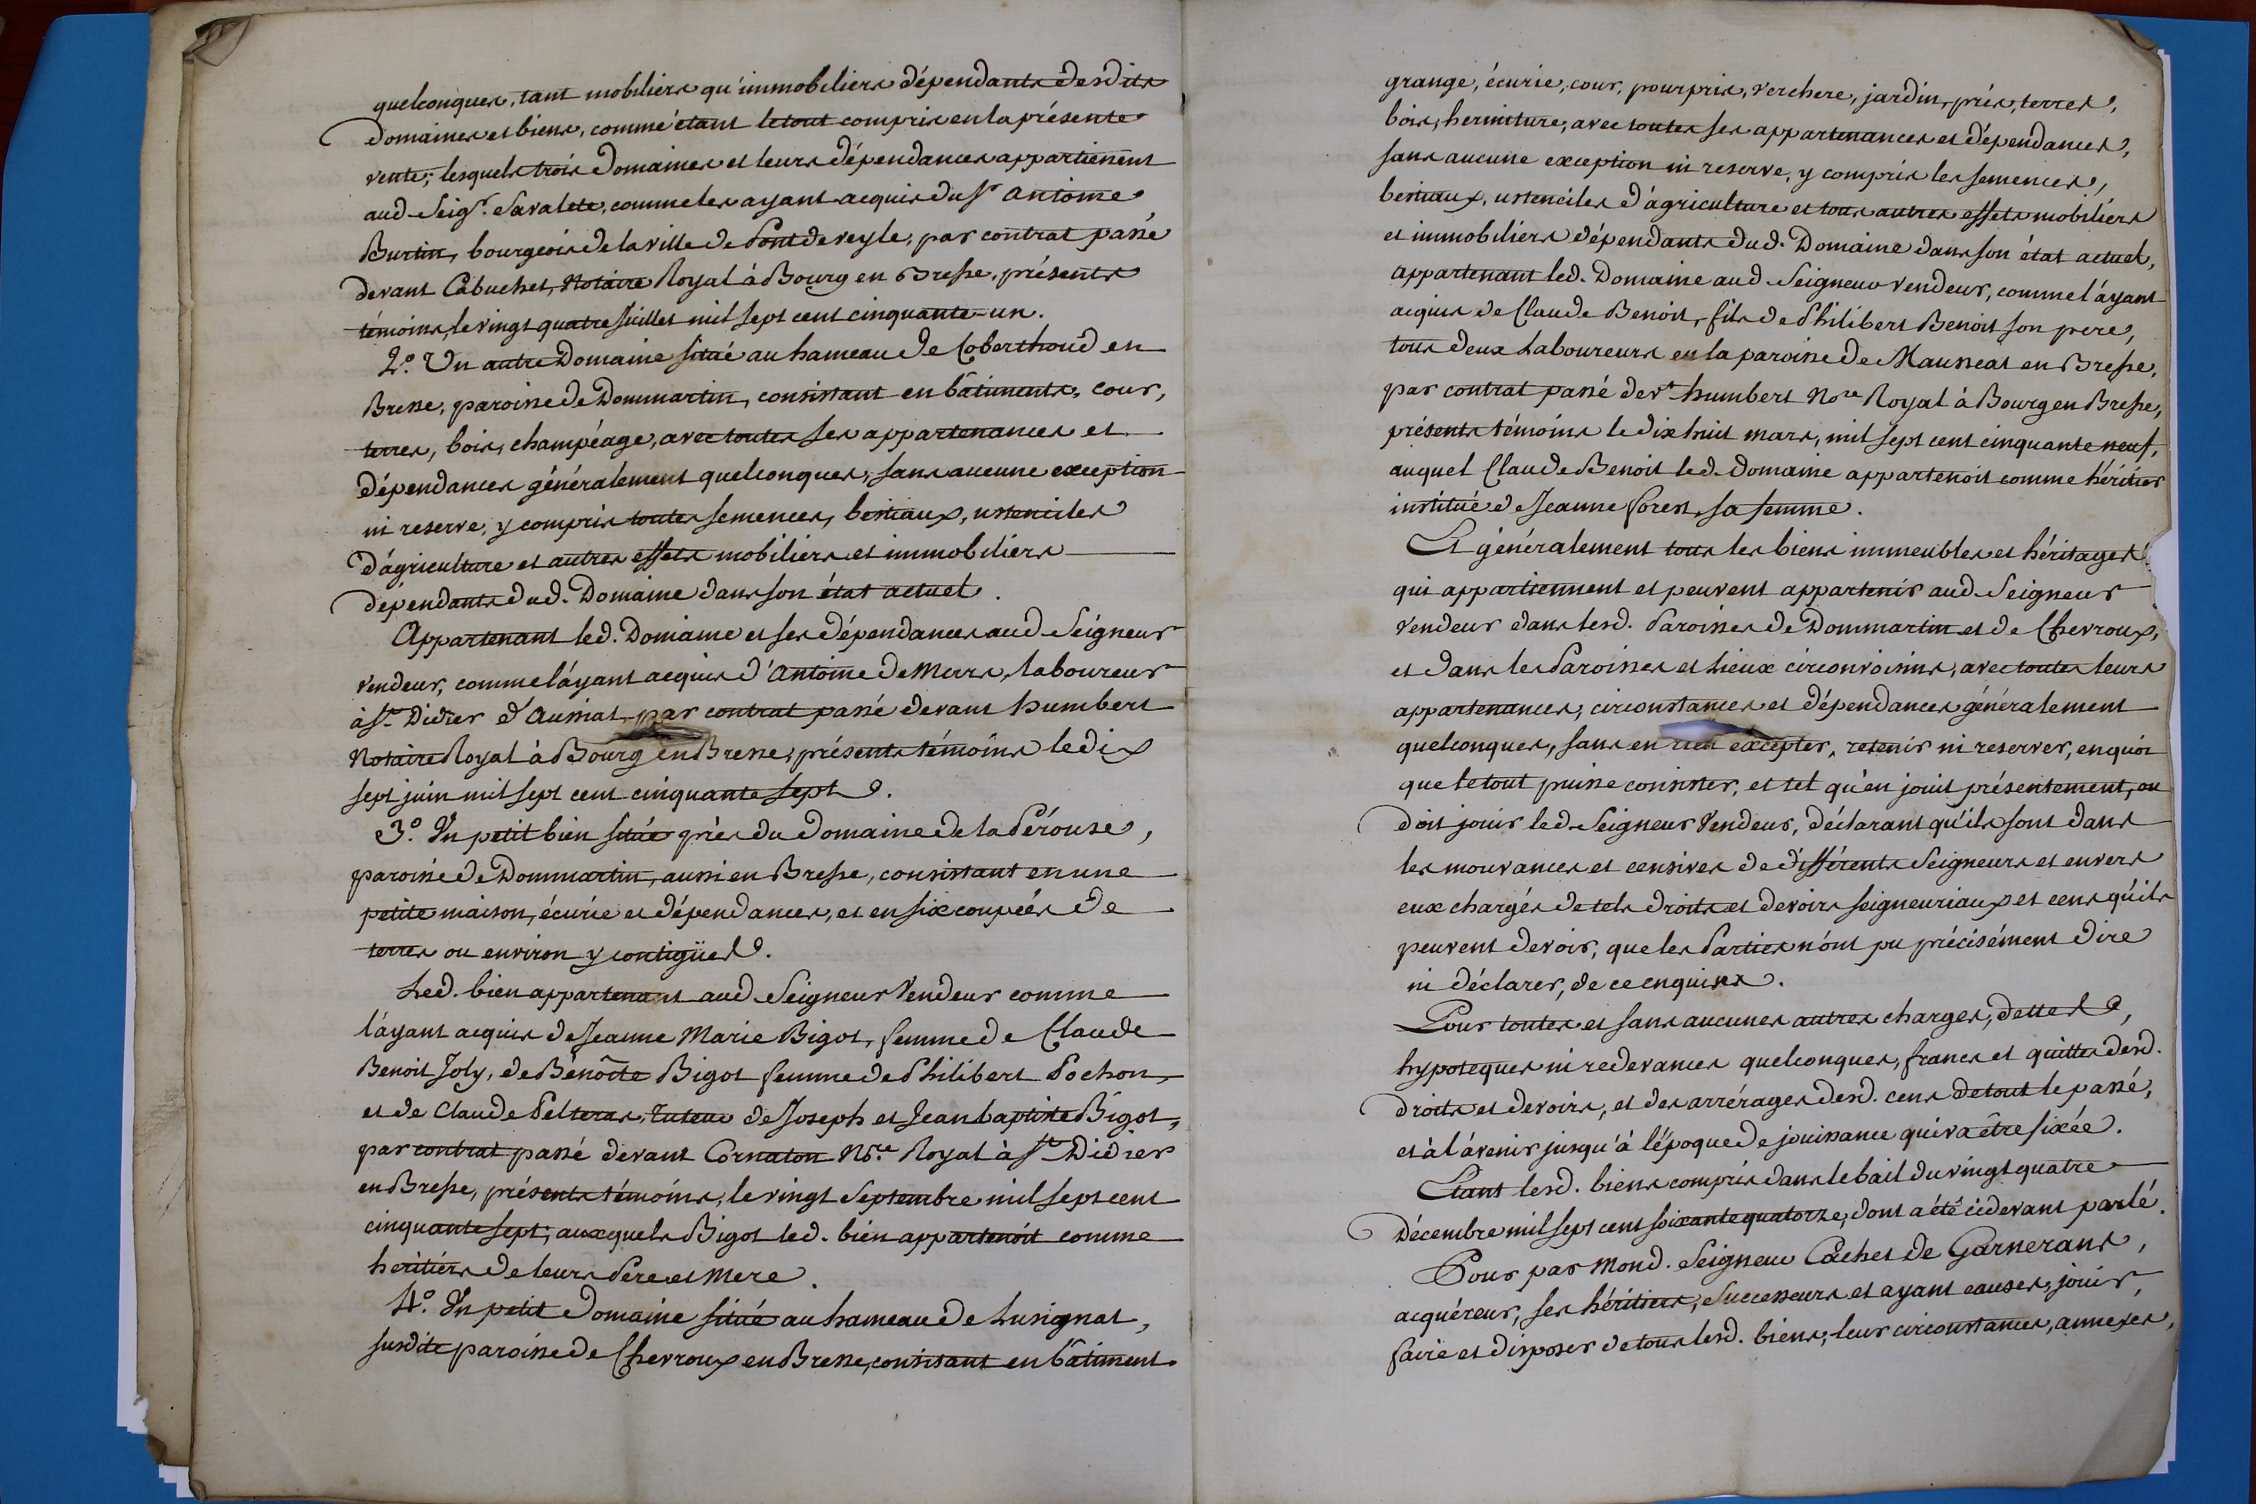 quelconques, tant mobiliers qu'immobiliers dépendants desdits
domaines et biens, comme étant le tout compris en la présente
vente; lesquels trois domaines et leurs dépendances appartienent
aud. Seigr. Savalete, comme les ayant acquis du Sr. Antoine
Burtin, bourgeois de la ville de Pont de veyle, par contrat passé
devant Cabuchet, Notaire Royal à Bourg en Bresse, présents
témoins, le vingt quatre Juillet mil sept cent cinquante-un.
2.° Un autre Domaine situé au hameau de Coberthoud en
Bresse, paroisse de Dommartin, consistant en bâtiments, cour,
terres, bois, champéage, avec toutes ses appartenances et
dépendances généralement quelconques, sans aucune exception
ni reserve, y compris toutes semences, bestiaux, ustenciles
d'agriculture et autres effets mobiliers et immobiliers
dépendants dud. Domaine dans son état actuel.
Appartenant led. Domaine et ses dépendances aud. Seigneur
vendeur, comme l'áyant acquis d'Antoine de Murs, laboureur
à St. Didier d'Aussiat, par contrat passé devant humbert
Notaire Royal à Bourg en Bresse, présents témoins le dix
sept juin mil sept cent cinquante sept.
3.° Un petit bien situé près du domaine de la Pérouse,
paroisse de Dommartin, aussi en Bresse, consistant en une
petite maison, écurie et dépendances, et en six coupées de
terres ou environ y contigües.
Led. bien appartenant aud. Seigneur Vendeur comme
l'áyant acquis de Jeanne Marie Bigot, femme de Claude
Benoit Joly, de Bénoîte Bigot femme de Philibert Pochon,
et de Claude Pelteras, tuteur de Joseph et Jean baptiste Bigot,
par contrat passé devant Cornaton Nre. Royal à St. Didier
en Bresse, présents témoins, le vingt Septembre mil sept cent
cinquante sept; auxquels Bigot led. bien appartenoit comme
héritiérs de leurs Pere et Mere.
4.° Un petit domaine situé au hameau de Lusignat,
susdite paroisse de Chevroux en Bresse, consistant en bâtiment.
grange, écurie, cour, pourpris, verchere, jardin, prés, terres,
bois, herméture, avec toutes ses appartenances et dépendances,
sans aucune exception ni reserve, y compris les semences,
bestiaux, ustenciles d'agriculture et tous autres effets mobiliérs
et immobiliers dépendants dud. Domaine dans son état actuel,
appartenant led. Domaine aud. Seigneur vendeur, comme l'ayant
acquis de Claude Benoit, fils de Philibert Benoit son pere,
tous deux Laboureurs en la paroisse de Mausseat en Bresse,
par contrat passé devt. humbert Nore. Royal à Bourg en Bresse,
présents témoins le dix huit mars, mil sept cent cinquante neuf,
auquel Claude Benoit led. domaine appartenoit comme héritier
institué de Jeanne forest, sa femme.
Et généralement tous les biens immeubles et héritages
qui appartiennent et peuvent appartenir aud. Seigneur
vendeur dans lesd. Paroisses de Dommartin et de Chevroux,
et dans les Paroisses et Lieux circonvoisins, avec toutes leurs
appartenances, circonstances et dépendances généralement
quelconques, sans en rien excepter, retenir ni reserver, en quoi
que le tout puisse consister, et tel qu'en jouit présentement, ou
doit jouir led. Seigneur Vendeur, déclarant qu'ils sont dans
les mouvances et censives de différents Seigneurs et envers
eux chargés de tels droits et devoirs seigneuriaux et cens qu'ils
peuvent devoir, que les Parties n'ont pu précisément dire
ni déclarer, de ce enquises.
Pour toutes et sans aucunes autres charges, dettes,
hypoteques ni redevances quelconques, francs et quittes desd.
droits et devoirs, et des arrérages desd. cens de tout le passé,
et à l'ávenir jusqu'à l'époque de jouissance qui va être fixée.
Etant lesd. biens compris dans le bail du vingt quatre
Décembre mil sept cent soixante quatorze, dont a été cidevant parlé.
Pour par Mond. Seigneur Cachet de Garnerans,
acquéreur, ses héritiers, successeurs et ayant causes, jouir,
faire et disposer de tous lesd. biens, leurs circonstances, annexes,